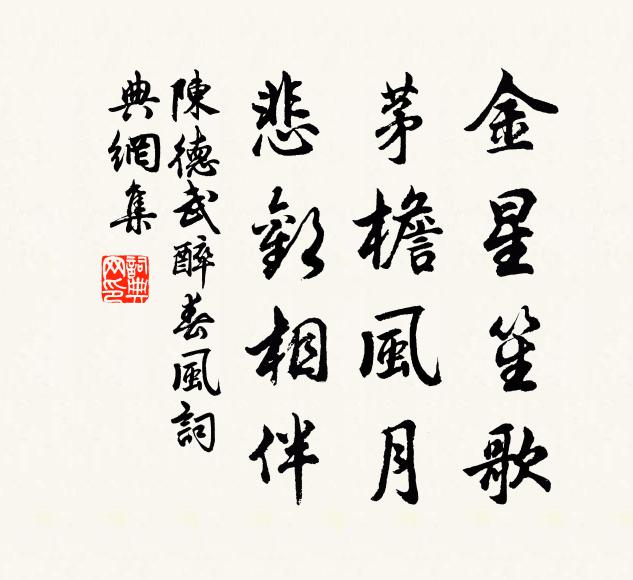 金星笙歌
茅檐風月
悲歡相伴
陳德武醉春風詞
典網集
詞典
网印